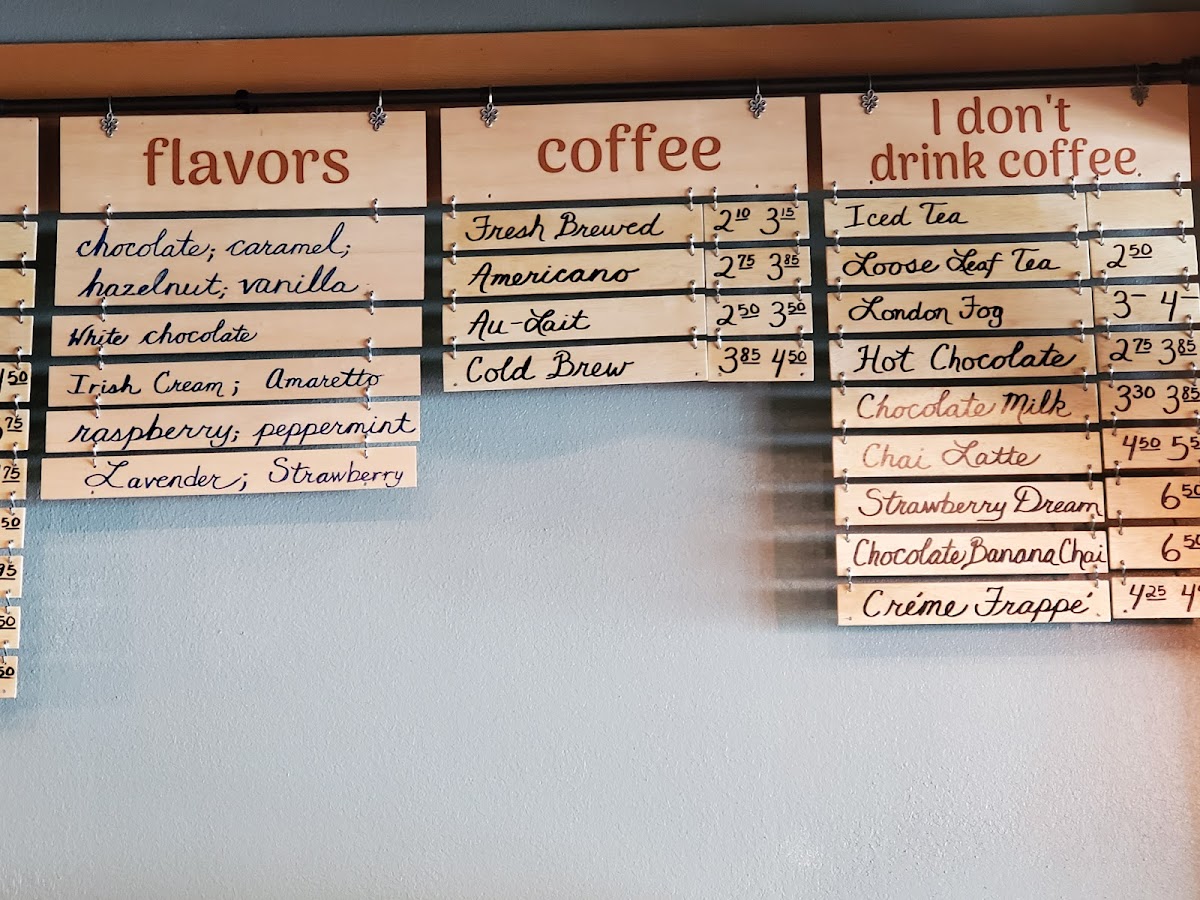 flavors
chocolate; caramel;
hazelnut; vanilla
White chocolate
Irish Cream; Amaretto
raspberry; peppermint
Lavender; Strawberry
coffee
Fresh Brewed 210 315
Americano 275 385
Au-Lait 250 350
Cold Brew 385 450
I don't
drink coffee.
Iced Tea
Loose Leaf Tea 250
London Fog 3- 4-
Hot Chocolate 275 385
Chocolate Milk 330 385
Chai Latte 450
Strawberry Dream 650
Chocolate Banana Chai 650
Créme Frappé 425